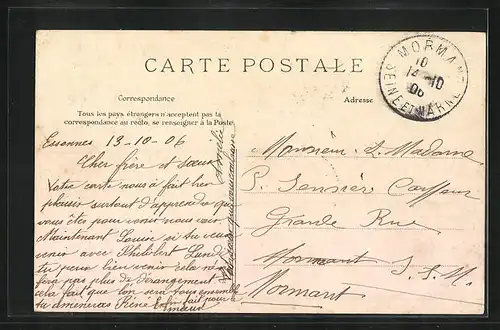 CARTE POSTALE
Correspondance
Adresse
Tous les pays étrangers n'acceptent pas la
correspondance au recto, se renseigner à la Poste
MORMANT
10
14-10
06
SEINE ET MARNE
Essonnes 13-10-06
Cher frère et Soeur
Votre carte nous à fait bien
plaisir surtout d'apprendre que
vous êtes pour venir nous voir
Maintenant Louise si tu veux
venir avec Philibert Lundi
tu peux bien venir cela ne
fera pas plus de dérangement
cela fait que l'on sera tous ensemble
tu amèneras Réné
Monsieur & Madame
P. Sennière Coiffeur
Grande Rue
Mormant S. & M.
Mormant